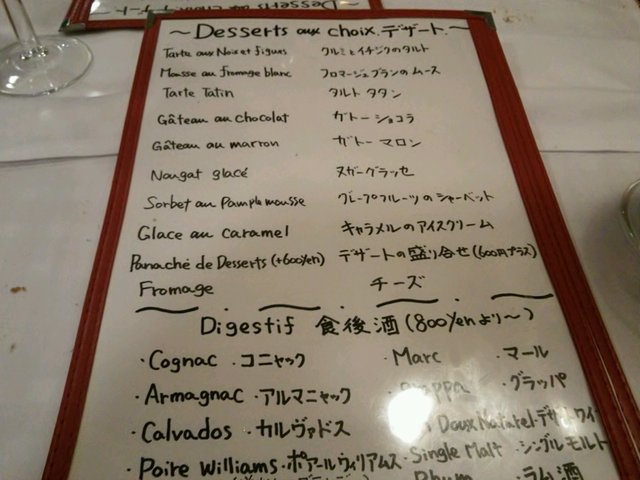 ~ Desserts aux choix. デザート. ~
Tarte aux Nois et figues クルミとイチジクのタルト
Mousse au fromage blanc フロマージュブランのムース
Tarte Tatin タルト タタン
Gâteau au chocolat ガトー ショコラ
Gâteau au marron ガトー マロン
Nougat glacé ヌガーグラッセ
Sorbet au Pamplemousse グレープフルーツのシャーベット
Glace au caramel キャラメルのアイスクリーム
Panaché de Desserts (+600yen) デザートの盛り合せ (600円プラス)
Fromage チーズ
Digestif 食後酒 (800yenより~)
・Cognac ・コニャック ・Marc ・マール
・Armagnac ・アルマニャック ・グラッパ
・Calvados ・カルヴァドス Doux Naturel・デザートワイ
・Poire Williams・ポアールウィリアムス ・Single Malt ・シングルモルト
Rhum ラム酒